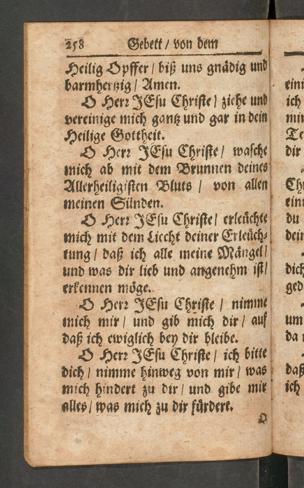 258 Gebett / von dem
Heilig Opffer / biß uns gnädig und
barmhertzig / Amen.
O Herr JEsu Christe / ziehe und
vereinige mich gantz und gar in dein
Heilige Gottheit.
O Herr JEsu Christe / wasche
mich ab mit dem Brunnen deines
Allerheiligisten Bluts / von allen
meinen Sünden.
O Herr JEsu Christe / erleüchte
mich mit dem Liecht deiner Erleüch-
tung / daß ich alle meine Mängel /
und was dir lieb und angenehm ist /
erkennen möge.
O Herr JEsu Christe / nimme
mich mir / und gib mich dir / auf
daß ich ewiglich bey dir bleibe.
O Herr JEsu Christe / ich bitte
dich / nimme hinweg von mir / was
mich hindert zu dir / und gibe mir
alles / was mich zu dir fürdert.
O